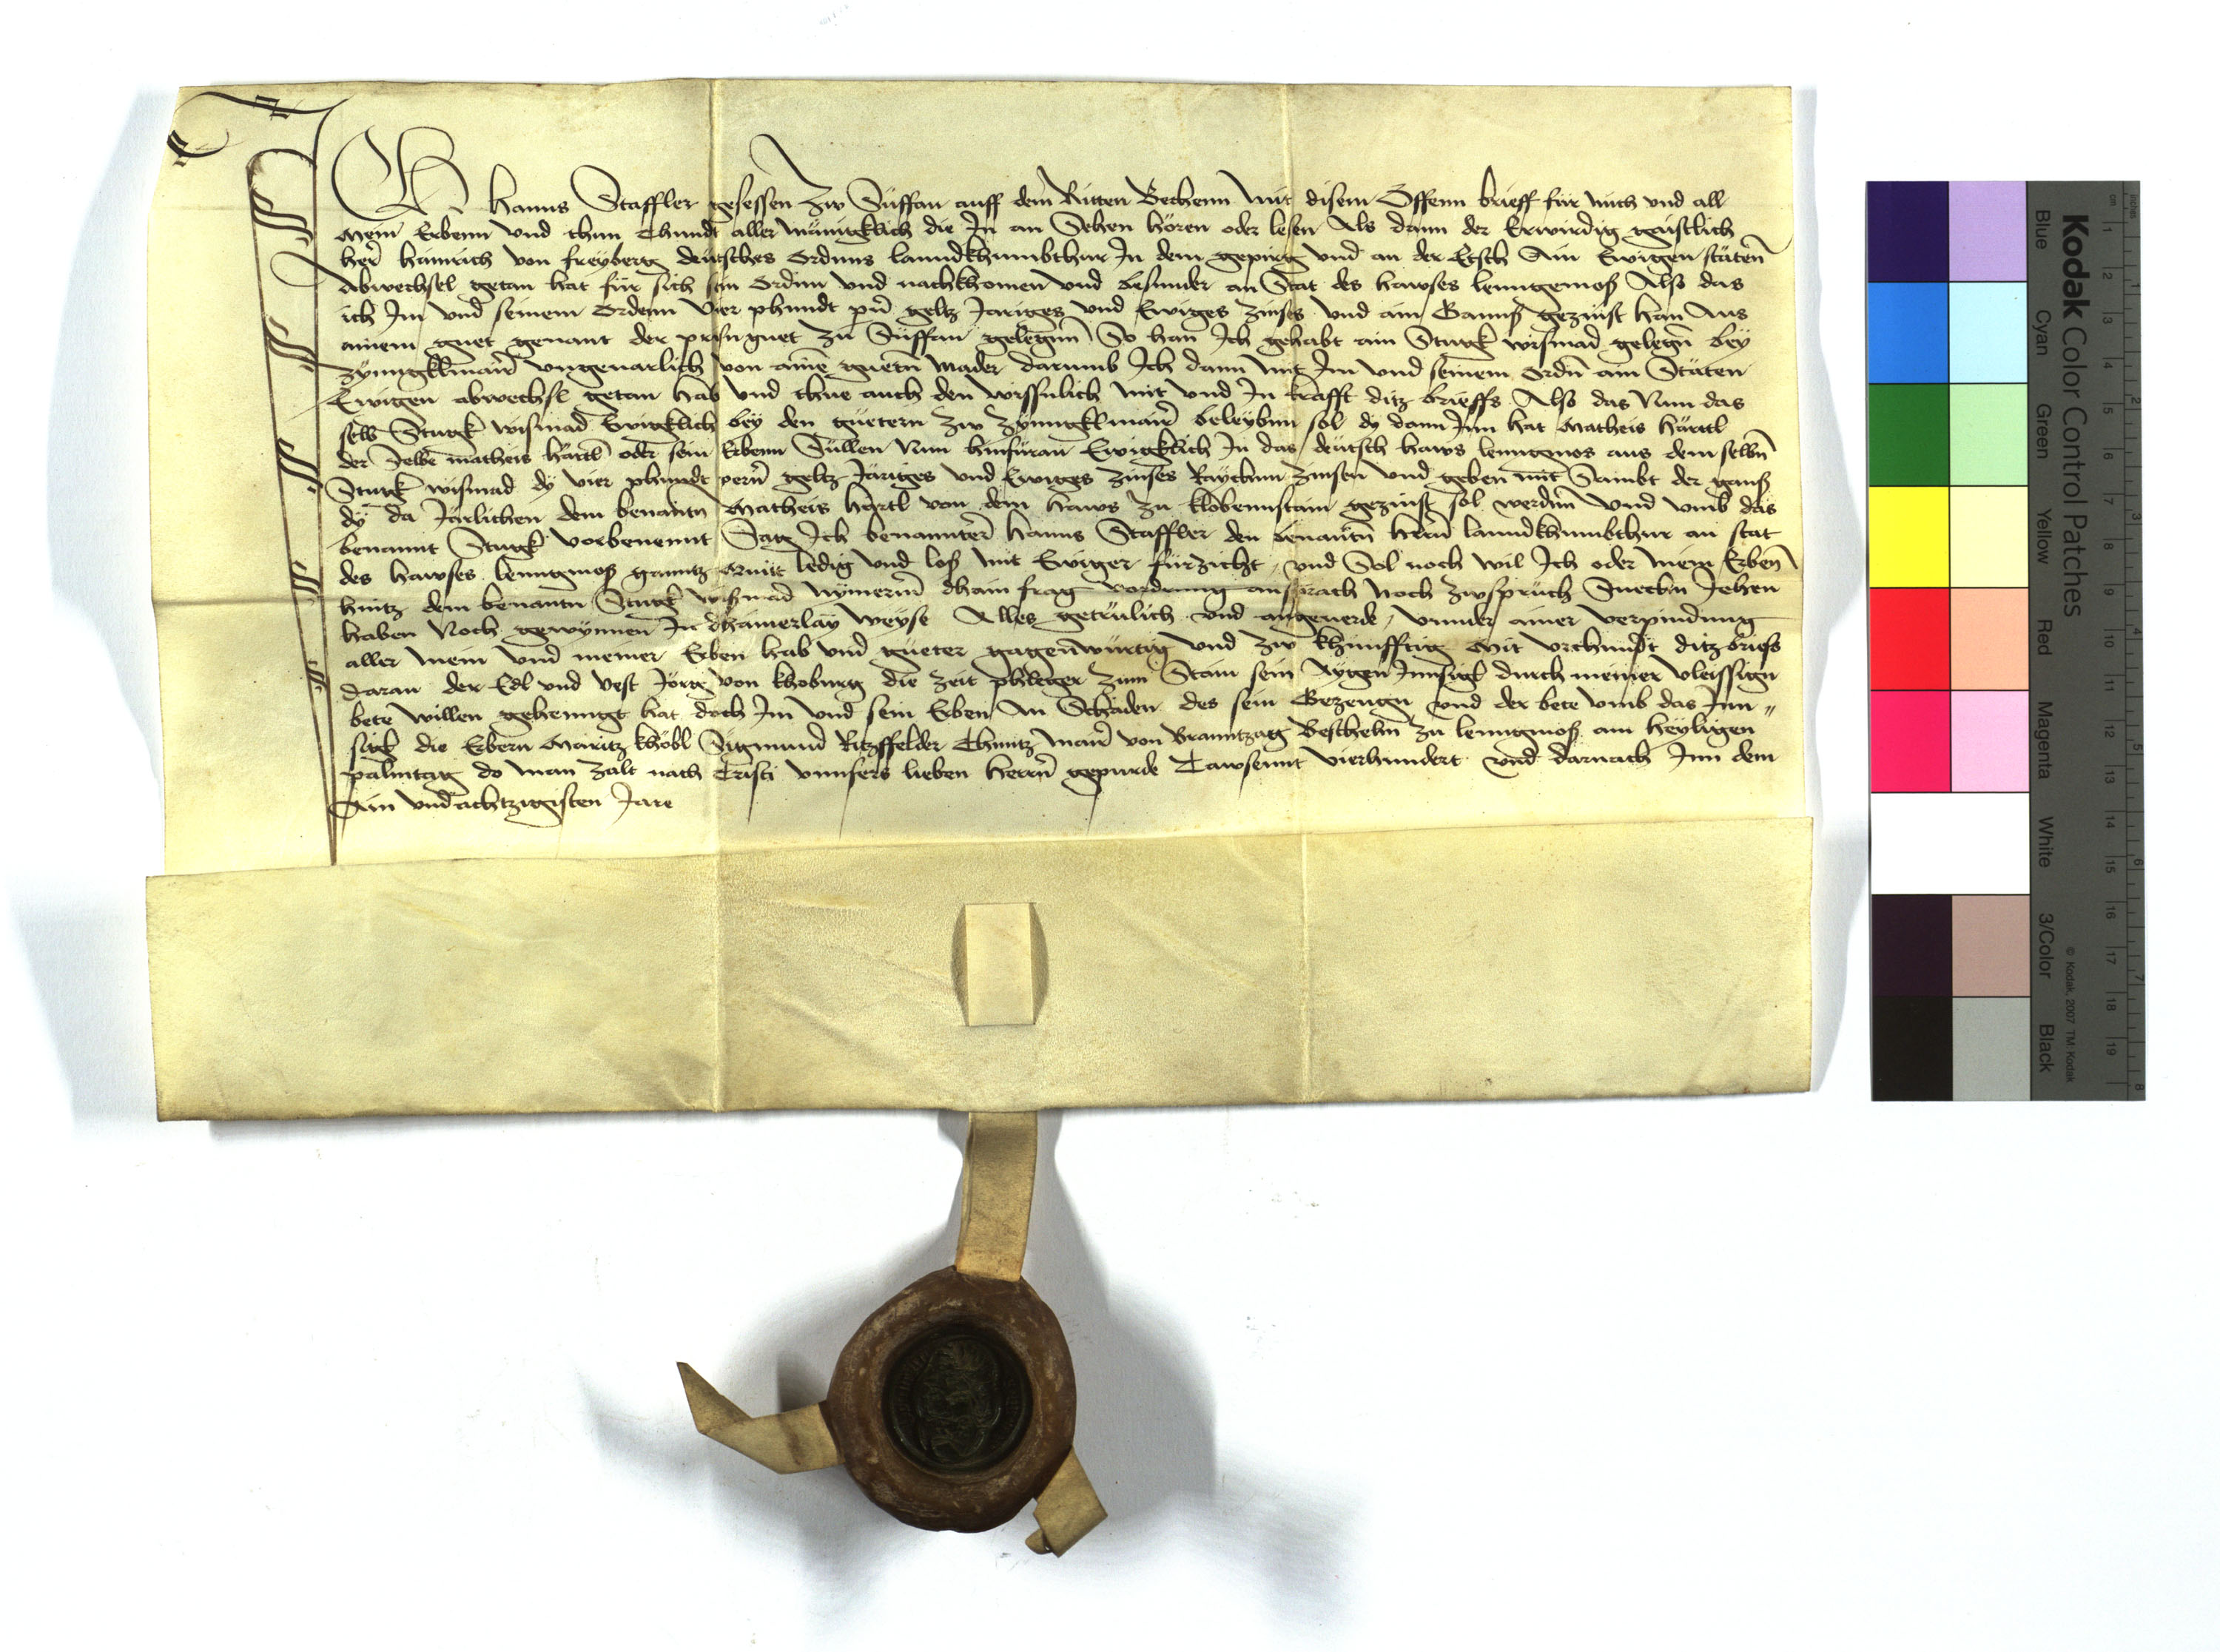 Ich Hanns Staffler gesessen zw Süffan auff dem Ritten Bechenn mit disem Offenn brieff für mich vnd all
mein Erbenn vnd thun Chundt aller mänigklich die In an Sehen hören oder lesen Als dann der Erwirdig gaistlich
her hainrich von freyberg deutsches Ordenns lanndkhumbthur In dem gepirg vnd an der Etsch Ain Ewigen stäten
Abwechsel getan hat für sich sein Ordenn vnd nachkhomen vnd besunder an Stat des hawses lenngemoß Also das
ich Im vnd seinem Ordenn vier phundt pn geltz Järiges vnd Ewiges zinses vnd ain Ganns gezinst han Aus
ainem guet genant der guet zu Süffan gelegen So han Ich gehabt ain Stugk wismad gelegn bey
zynngklmair vngeuarlich von aine guetn mader darumb Ich dann mit Im vnd seinem ordn ain Stäten
Ewigen abwechsl getan hab vnd thue auch den wissnlich mit vnd In krafft ditz brieffs Also das Nun das
selb Stugk wismad Ewigklich bey den guetern zw zynngklmair beleybnn sol dy dann Inn hat Matheis härttl
der selbe matheis härtl oder sein Erbenn Süllen Nun hinfüran Ewigklich In das deutsch haws lenngmos aus dem selbn
Stugk wismad dy vier phundt pern geltz Järiges vnd Ewiges zinses Raychnn zinsen vnd geben mit Sambt der ganß
dy da Järlichen dem benantn Matheis härtl von dem haws zu klobennstain gezinst sol werdnn Vnd vmb das
benannt Stugk vorbenennt Sag Ich benannter Hanns Staffler den benantn hern lanndkhumbthur an stat
des hawses lenngmoß ganntz Quitt ledig vnd loß mit Ewiger fürzicht vnd Sol noch wil Ich oder mein Erben
hintz dem benantn Stugk wismad nymerm dhain frag vordrung ansprach noch zwspruch Suechn Jehen
haben Noch gewynnen In dhainerlay weyse Alles getrülich vnd angeuerde vnnder ainer verpindung
aller mein vnd meiner Erben hab vnd güeter gagenwürtig vnd zw khünfftig Mit vrchundt ditz briefs
daran der Edl vnd vest Jörg von khoburg die zeit phleger zum Stain sein Aygen Innsigl durch meiner vleissign
bete willen gehenngt hat doch Im vnd sein Erben An Schaden des sein Gezeugn vnd der bete vmb das Inn„
sigl die Erbern Märitz khöbl Sigmund Ritzffelder Chuntz mair von Branntzag Beschehn zu lenngmoß am heyligen
palmtag do man zalt nach Cristi vnnsers lieben herrn gepurde Tawsennt vierhundert vnd darnach Inn dem
Ain vnd achtzigisten Jare
Kodak Color Control Patches
Blue Cyan Green Yellow Red Magenta White 3/Color Black
© Kodak, 2007 TM: Kodak
inches 1 2 3 4 5 6 7 8
cm 1 2 3 4 5 6 7 8 9 10 11 12 13 14 15 16 17 18 19